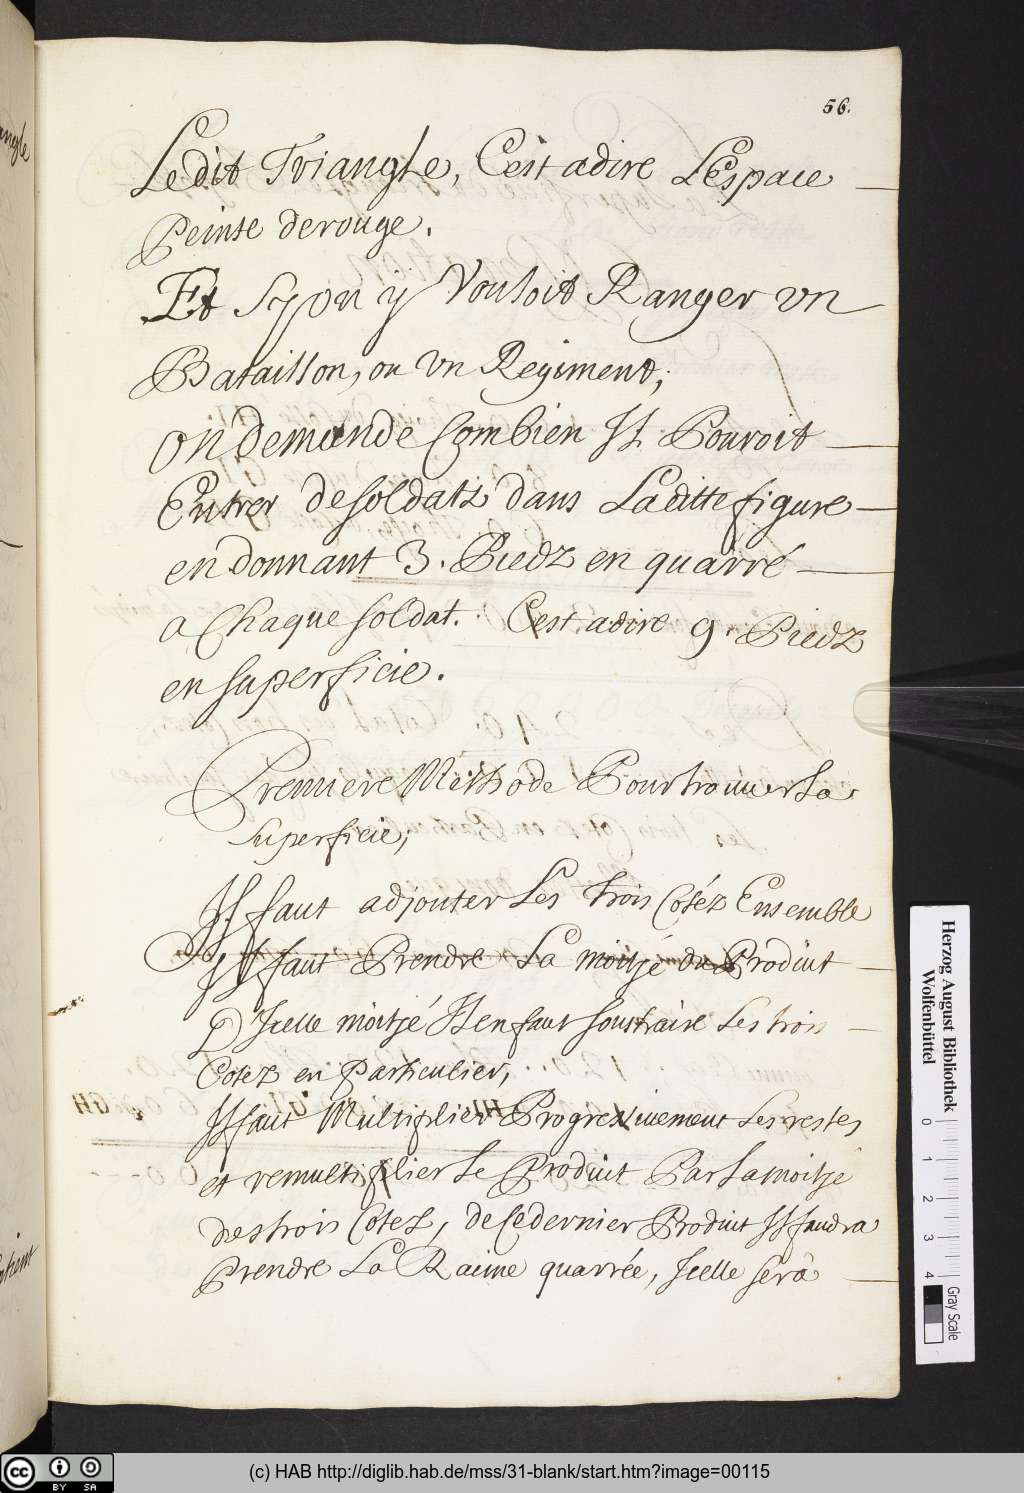 56.
Ledit Triangle, C'est adire L'Espace
Peinte derouge.
Et Sy on ÿ Vouloit Ranger vn
Bataillon, ou vn Regiment,
on demende Combien Il Pouroit
Entrer desoldatz dans Laditte figure
en donnant 3. Piedz en quarré
a Chaque soldat. C'est adire 9. Piedz
en superficie.
Premiere Methode Pour trouuer La
superficie,
Il faut adjouter Les trois Cotéz Ensemble
Il faut Prendre La moitjé du Produit
D'Icelle moitjé Il en faut soustraire Les trois
Cotez en Particulier,
Il faut Multiplier Progressiuement Les restes
et remultiplier Le Produit Par La moitje
des trois Cotez, de Ce dernier Produit Il faudra
Prendre La Racine quarrée, Icelle sera
Herzog August Bibliothek
Wolfenbüttel
0 1 2 3 4
Gray Scale
cc BY SA
(c) HAB http://diglib.hab.de/mss/31-blank/start.htm?image=00115